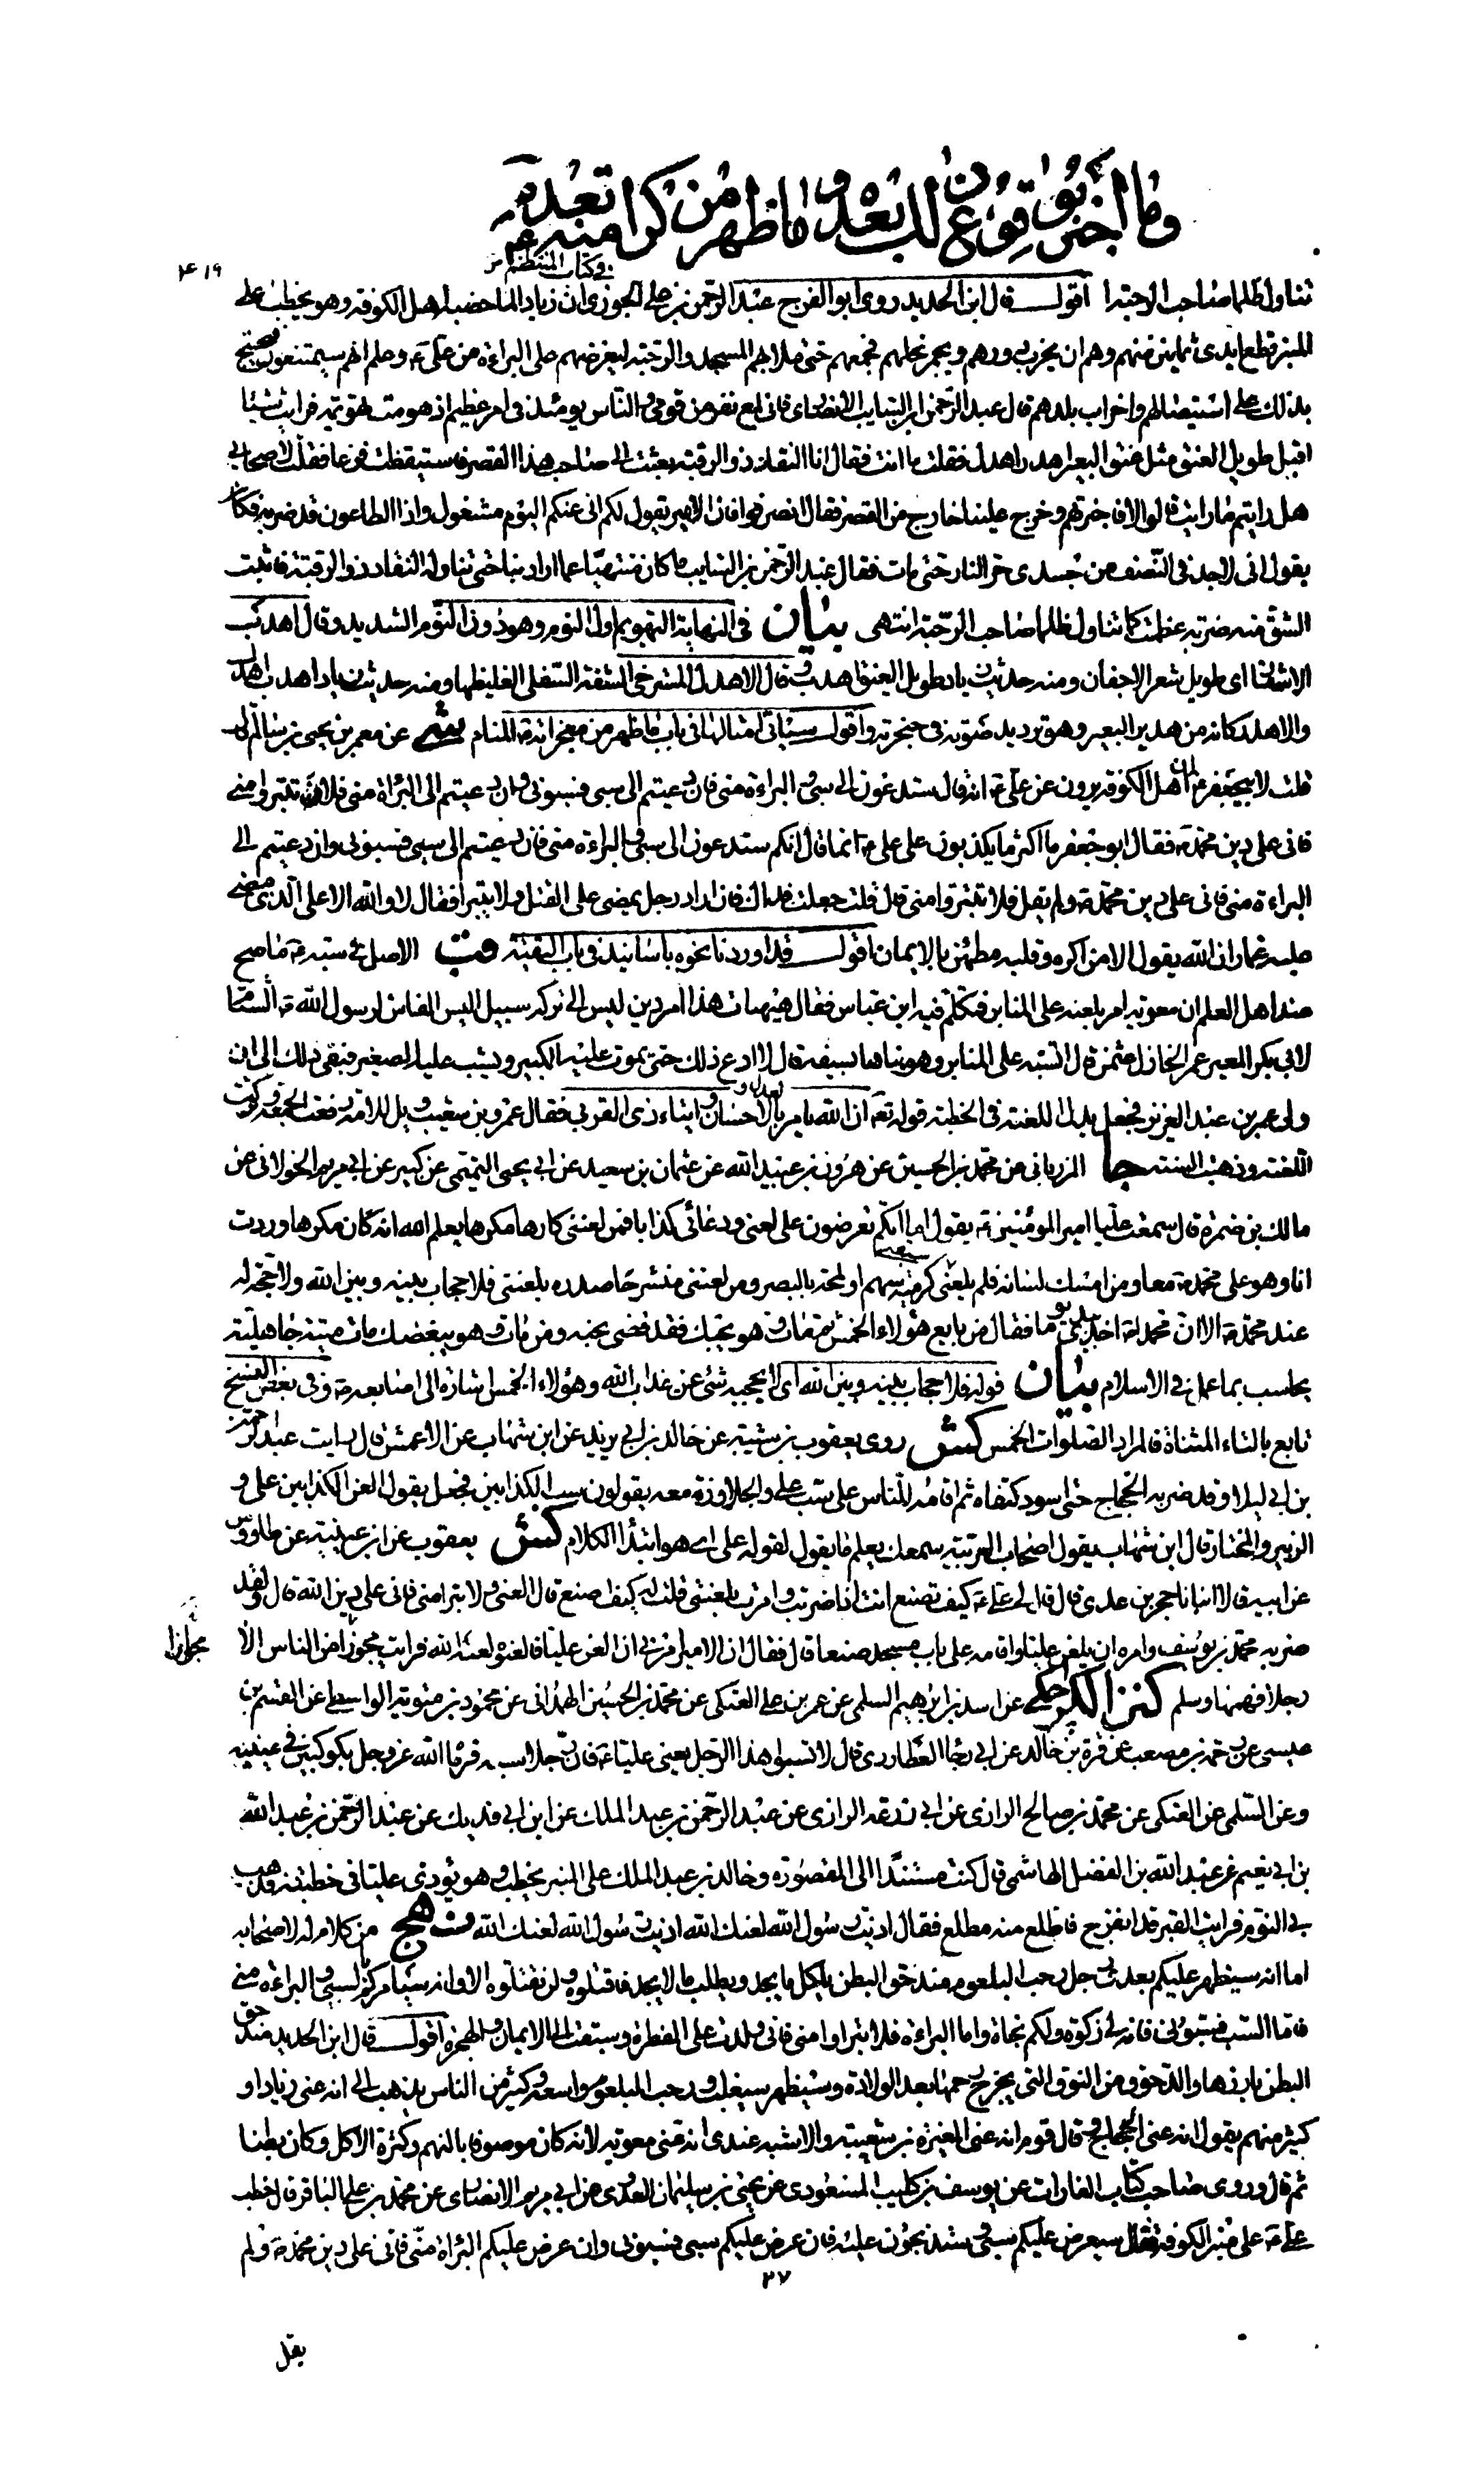 وما أخبر بوقوعه ن السب بعده وما ظهر من كرامته عنده
۴۱۹
في كتاب المنتظم
تناول ظلما صاحب الرحبة اقول قال ابن الحديد روى ابو الفرج عبد الرحمن بن علي الجوزي ان زيادا لما حضبه اهل الكوفة وهو يخطب على
المنبر قطع ايدي ثمانين منهم وهم ان يخرب دورهم ويجمر نخلهم فجمعهم حتى ملا بهم المسجد والرحبة ليعرضهم على البراءة من علي ع وعلم انهم سيمتنعون فيحتج
بذلك على استيصالهم واخراب بلدهم قال عبد الرحمن بن السايب الانصاري فاني لمع نفر من قومي والناس يومئذ في امر عظيم اذ هومت تهويمة فرايت شيئا
اقبل طويل العنق مثل عنق البعير اهدر اهدل فقلت ما انت فقال انا النقاد ذو الرقبة بعثت الى صاحب هذا القصر فاستيقظت فزعا فقلت لاصحابي
هل رايتم ما رايت قالوا لا فاخبرتهم وخرج علينا خارج من القصر فقال انصرفوا فان الامير يقول لكم اني عنكم اليوم مشغول واذا الطاعون قد ضربه فكان
يقول اني لاجد في النصف من جسدي حر النار حتى مات فقال عبد الرحمن بن السايب ما كان منتهيا عما اراد بنا حتى تناوله النقاد ذو الرقبة فاثبت
الشق منه ضربة عظمت كما تناول ظلما صاحب الرحبة انتهى بيان في النهاية التهويم اول النوم وهو دون النوم الشديد وقال اهدب
الاشفار اي طويل شعر الاجفان ومنه حديث زياد طويل العنق اهدب وقال الاهدل المسترخي الشفة السفلى الغليظها ومنه حديث زياد اهدب اهدل
والاهدر كانه من هدير البعير وهو ترديد صوته في حنجرته واقول سيأتي امثالها في باب ما ظهر من معجزاته في المنام شي عن معمر بن يحيى بن سالم قال
قلت لابي جعفر ع ان اهل الكوفة يروون عن علي ع انه قال ستدعون الى سبي والبراءة مني فان دعيتم الى سبي فسبوني وان دعيتم الى البراءة مني فلا تتبرؤا مني
فاني على دين محمد ص فقال ابو جعفر ما اكثر ما يكذبون على علي ع انما قال انكم ستدعون الى سبي والبراءة مني فان دعيتم الى سبي فسبوني وان دعيتم الى
البراءة مني فاني على دين محمد ص ولم يقل فلا تتبرؤا مني قال قلت جعلت فداك فان اراد رجل يمضي على القتل ولا يتبرا فقال لا والله الا على الذي مضى
عليه عمار ان الله يقول الا من اكره وقلبه مطمئن بالايمان اقول قد اوردنا نحوه باسانيد في باب التقية قب الاصل في سبه ع ما صح
عند اهل العلم ان معوية امر بلعنه على المنابر فتكلم فيه ابن عباس فقال هيهات هذا امر دين ليس الى تركه سبيل اليس الغاش لرسول الله ص الشتام
لابي بكر المعير عمر الخاذل عثمن قال اتسبه على المنابر وهو بناها بسيفه قال لا ادع ذلك حتى يموت عليه الكبير ويشب عليه الصغير فبقي ذلك الى ان
ولي عمر بن عبد العزيز فجعل بدل اللعنة في الخطبة قوله تع ان الله يامر بالعدل والاحسان وايتاء ذي القربى فقال عمرو بن شعيب ويل للامة رفعت الجمعة وتركت
اللعنة وذهبت السنة جا المرزباني عن محمد بن الحسين عن هرون بن عبيد الله عن عثمان بن سعيد عن ابي يحيى التميمي عن كبير عن ابي مريم الخولاني عن
مالك بن ضمرة قال سمعت عليا امير المؤمنين ع يقول اما انكم تعرضون على لعني ودعائي كذابا فمن لعنني كارها مكرها يعلم الله انه كان مكرها وردت
انا وهو على محمد ص معا ومن امسك لسانه فلم يلعني سبقني كرمية سهم او لمحة بالبصر ومن لعنني منشرحا صدره بلعنتي فلا حجاب بينه وبين الله ولا حجة له
عند محمد ص الا ان محمدا ص اخذ بيدي يوما فقال من بايع هؤلاء الخمس ثم مات وهو يحبك فقد قضى نحبه ومن مات وهو يبغضك مات ميتة جاهلية
يحاسب بما عمل في الاسلام بيان قوله فلا حجاب بينه وبين الله اي لا يحجبه شئ عن عذاب الله وهؤلاء الخمس اشارة الى اصابعه ص وفي بعض النسخ
تابع بالتاء المثناة فالمراد الصلوات الخمس كش روى يعقوب بن شيبة عن خالد بن ابي يزيد عن ابن شهاب عن الاعمش قال رايت عبد الرحمن
بن ابي ليلا وقد ضربه الحجاج حتى اسود كتفاه ثم اقامه للناس على سب علي والجلاوزة معه يقولون سب الكذابين فجعل يقول العن الكذابين علي و
الزبير والمختار قال ابن شهاب يقول اصحاب العربية سمعك يعلم ما يقول لقوله علي اي هو ابتدا الكلام كش يعقوب عن ابن عيينة عن طاووس
عن ابيه قال انبانا حجر بن عدي قال قال لي علي ع كيف تصنع انت اذا ضربت وامرت بلعنتي قلت له كيف اصنع قال العني ولا تبرا مني فاني على دين الله قال ولقد
ضربه محمد بن يوسف وامره ان يلعن عليا واقامه على باب مسجد صنعا قال فقال ان الامير امرني ان العن عليا فالعنوه لعنه الله فرايت مجوزا من الناس الا
مجوازا
رجلا فهمها وسلم كنز الكراجكي عن اسد بن ابراهيم السلمي عن عمر بن علي العتكي عن محمد بن الحسين الهمداني عن محمود بن متويه الواسطي عن القسم بن
عيسى عن رحمة بن مصعب عن قرة بن خالد عن ابي رجا العطاردي قال لا تسبوا هذا الرجل يعني عليا ع فان رجلا سبه فرماه الله عز وجل بكوكبين في عينيه
وعن السلمي عن العتكي عن محمد بن صالح الرازي عن ابي زرعة الرازي عن عبد الرحمن بن عبد الملك عن ابن ابي فديك عن عبد الرحمن بن عبد الله
بن ابي نعيم عن عبد الله بن الفضل الهاشمي قال كنت مستندا الى المقصورة وخالد بن عبد الملك على المنبر يخطب وهو يؤذي عليا في خطبته فذهب
بي النوم فرايت القبر قد انفرج فاطلع منه مطلع فقال اذيت رسول الله لعنك الله اذيت رسول الله لعنك الله نهج من كلام له لاصحابه
اما انه سيظهر عليكم بعدي رجل رحب البلعوم مندحق البطن ياكل ما يجد ويطلب ما لا يجد فاقتلوه ولن تقتلوه الا وانه سيامركم بسبي والبراءة مني
فاما السب فسبوني فانه لي زكوة ولكم نجاة واما البراءة فلا تبراوا مني فاني ولدت على الفطرة وسبقت الى الايمان والهجرة اقول قال ابن الحديد مندحق
البطن بارزها والدحوق من النوق التي يخرج رحمها بعد الولادة وسيظهر سيغلب ورحب البلعوم واسعه وكثير من الناس يذهب الى انه عنى زيادا و
كثير منهم يقول انه عنى الحجاج وقال قوم انه عنى المغيرة بن شعيبة والاشبه عندي انه عنى معوية لانه كان موصوفا بالنهم وكثرة الاكل وكان بطنا
ثم قال وروى صاحب كتاب الغارات عن يوسف بن كليب المسعودي عن يحيى بن سليمان العبدي عن ابي مريم الانصاري عن محمد بن علي الباقر قال خطب
علي ع على منبر الكوفة فقال سيعرض عليكم سبي وستذبحون عليه فان عرض عليكم سبي فسبوني وان عرض عليكم البراة مني فاني على دين محمد ص ولم
۳۷
يقل